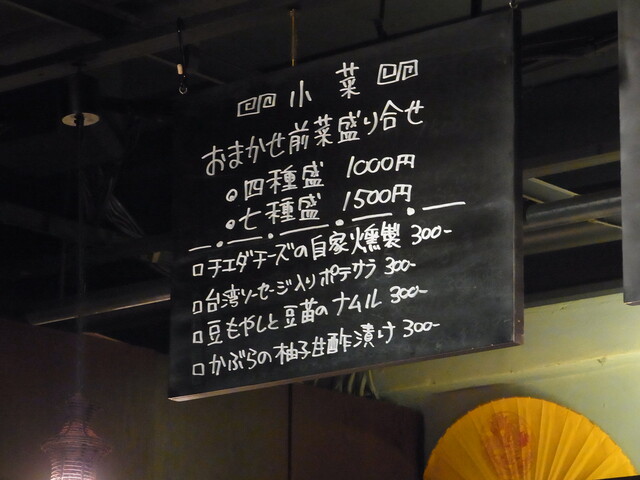 小菜
おまかせ前菜盛り合せ
四種盛 1000円
七種盛 1500円
チェダチーズの自家燻製 300-
台湾ソーセージ入りポテサラ 300-
豆もやしと豆苗のナムル 300-
かぶらの柚子甘酢漬け 300-